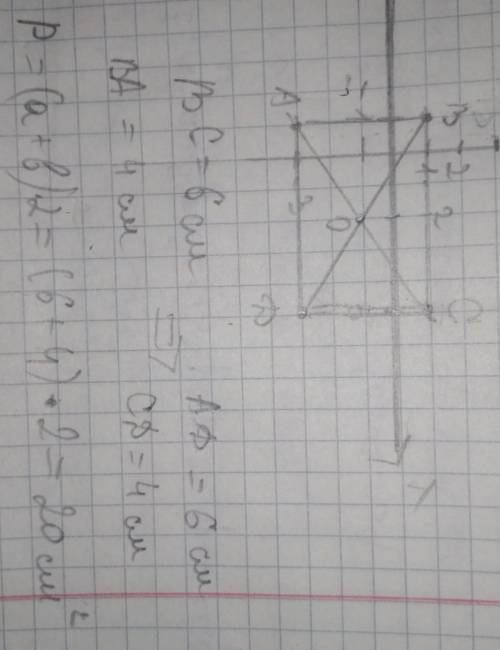 B
C
A
D
O
1
2
2
3
-1
BC = 6 см
AD = 6 см
BA = 4 см
⇒
CD = 4 см
P = (a + b) 2 = (6 + 4) · 2 = 20 см²